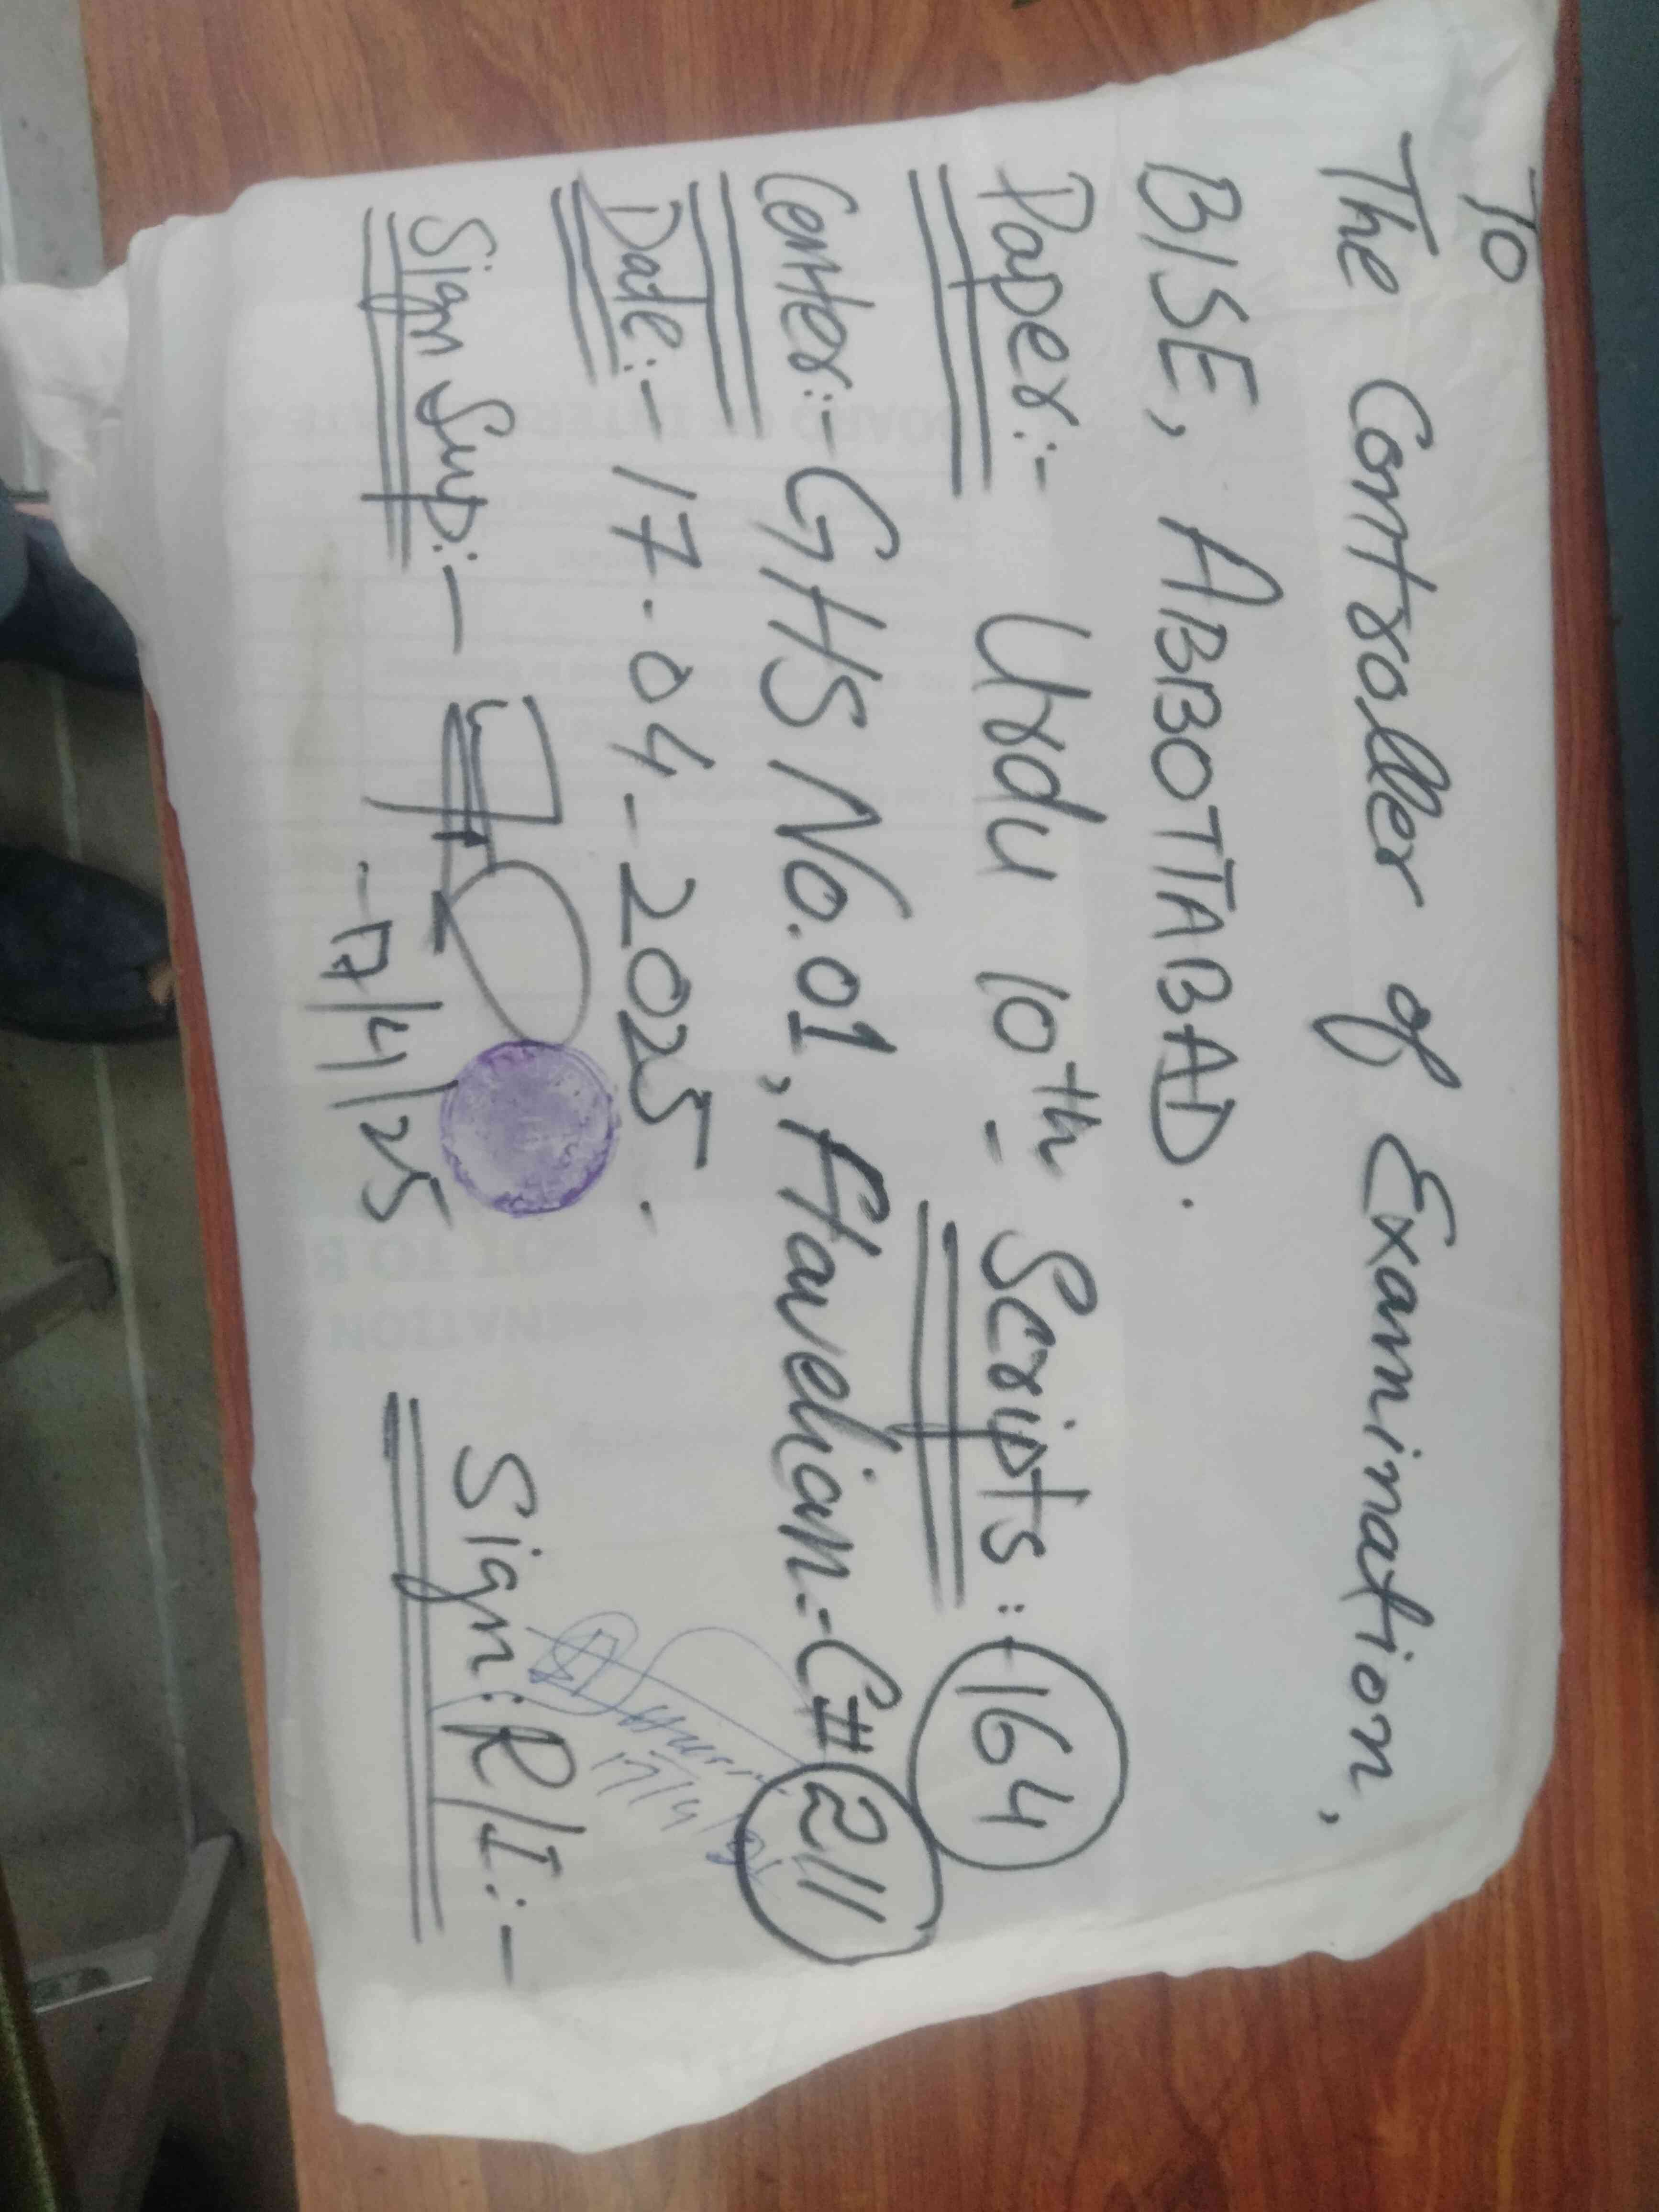 To
The Controller of Examination,
BISE, ABBOTTABAD.
Paper:- Urdu 10th - Scripts:- 164
Center:- GHS No.01, Havelian-C# 211
Date:- 17-04-2025.
Sign Sup:-
17/4/25
Sign: R/I:-